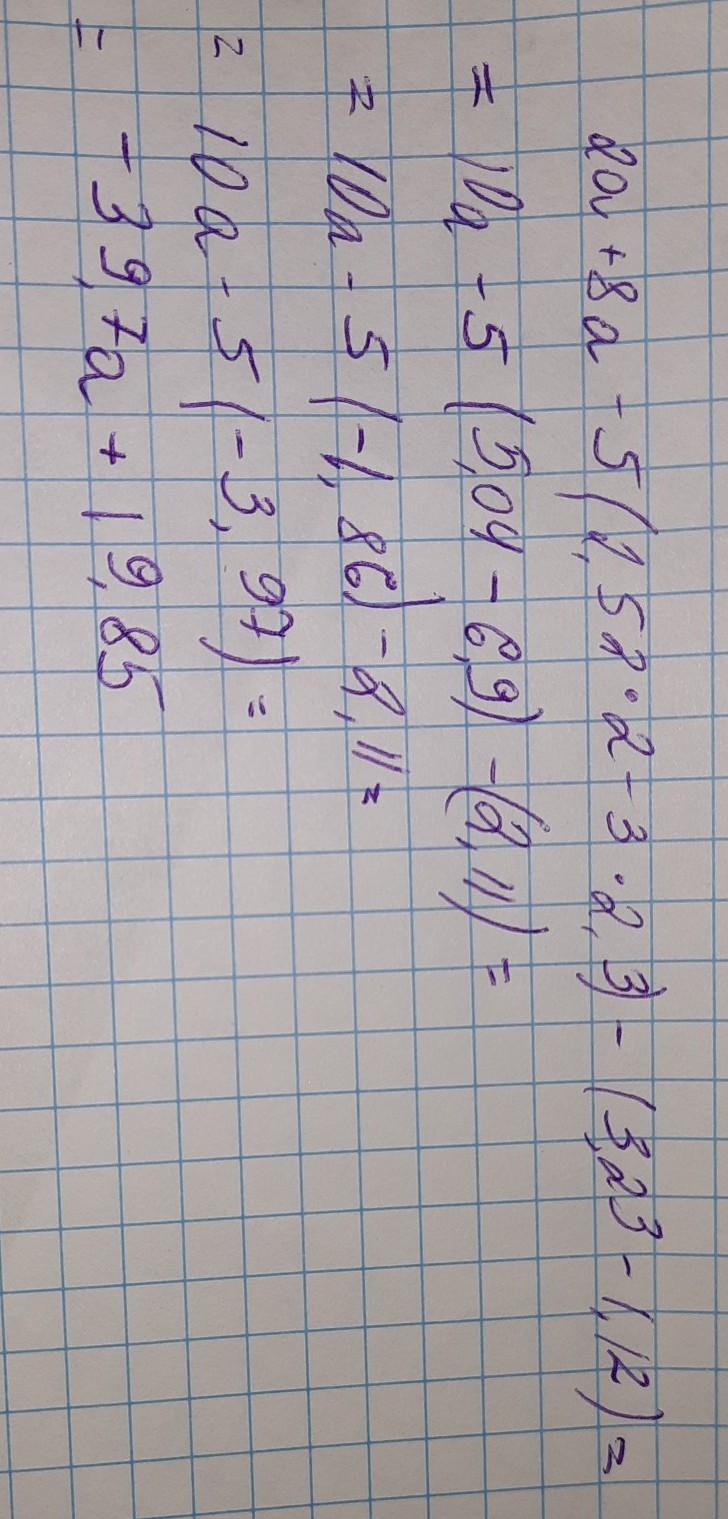 2a + 8a - 5(2,52·2 - 3·2,3) - (3,23 - 1,12) =
= 10a - 5(5,04 - 6,9) - (2,11) =
= 10a - 5(-1,86) - 2,11 =
= 10a - 5(-3,97) =
= -39,7a + 19,85